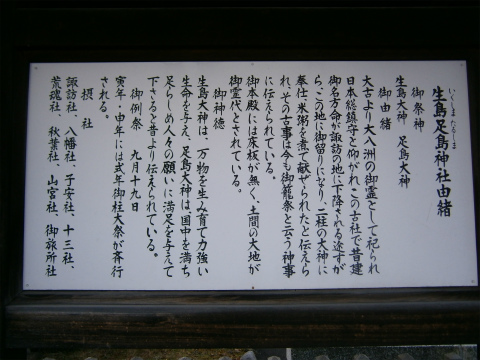 いくしまたるしま
生島足島神社由緒
御祭神
生島大神 足島大神
御由緒
太古より大八洲の御霊として祀られ
日本総鎮守と仰がれ、この古社で昔建
御名方命が諏訪の地に下降される途すが
ら、この地に御留りになり、二柱の大神に
奉仕し米粥を煮て献ぜられたと伝えら
れ、その古事は今も御籠祭と云う神事
に伝えられている。
御本殿には床板が無く、土間の大地が
御霊代とされている。
御神徳
生島大神は、万物を生み育て力強い
生命を与え、足島大神は、国中を満ち
足らしめ人々の願いに満足を与えて
下さると昔より伝えられている。
御例祭 九月十九日
寅年・申年には式年御柱大祭が斉行
される。
摂社
諏訪社、八幡社、子安社、十三社、
荒魂社、秋葉社、山宮社、御旅所社